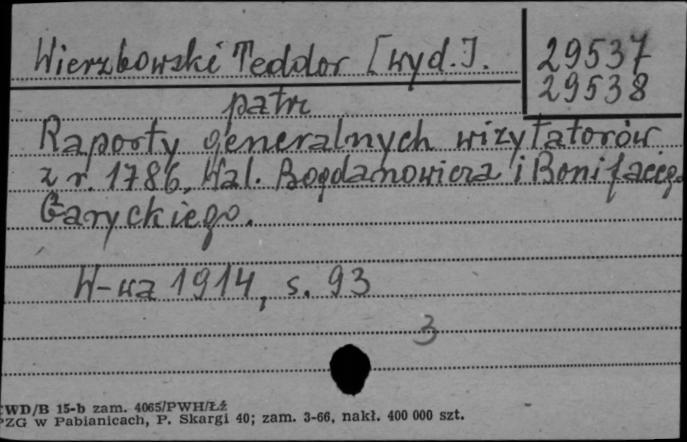 Wierzbowski Teodor [wyd.].
29537
29538
patrz
Raporty generalnych wizytatorów
z r. 1786, Wal. Bogdanowicza i Bonifacego
Garyckiego.
W-wa 1914, s. 93
3
WD/B 15-b zam. 4065/PWH/ŁŹ
PZG w Pabianicach, P. Skargi 40; zam. 3-66, nakł. 400 000 szt.